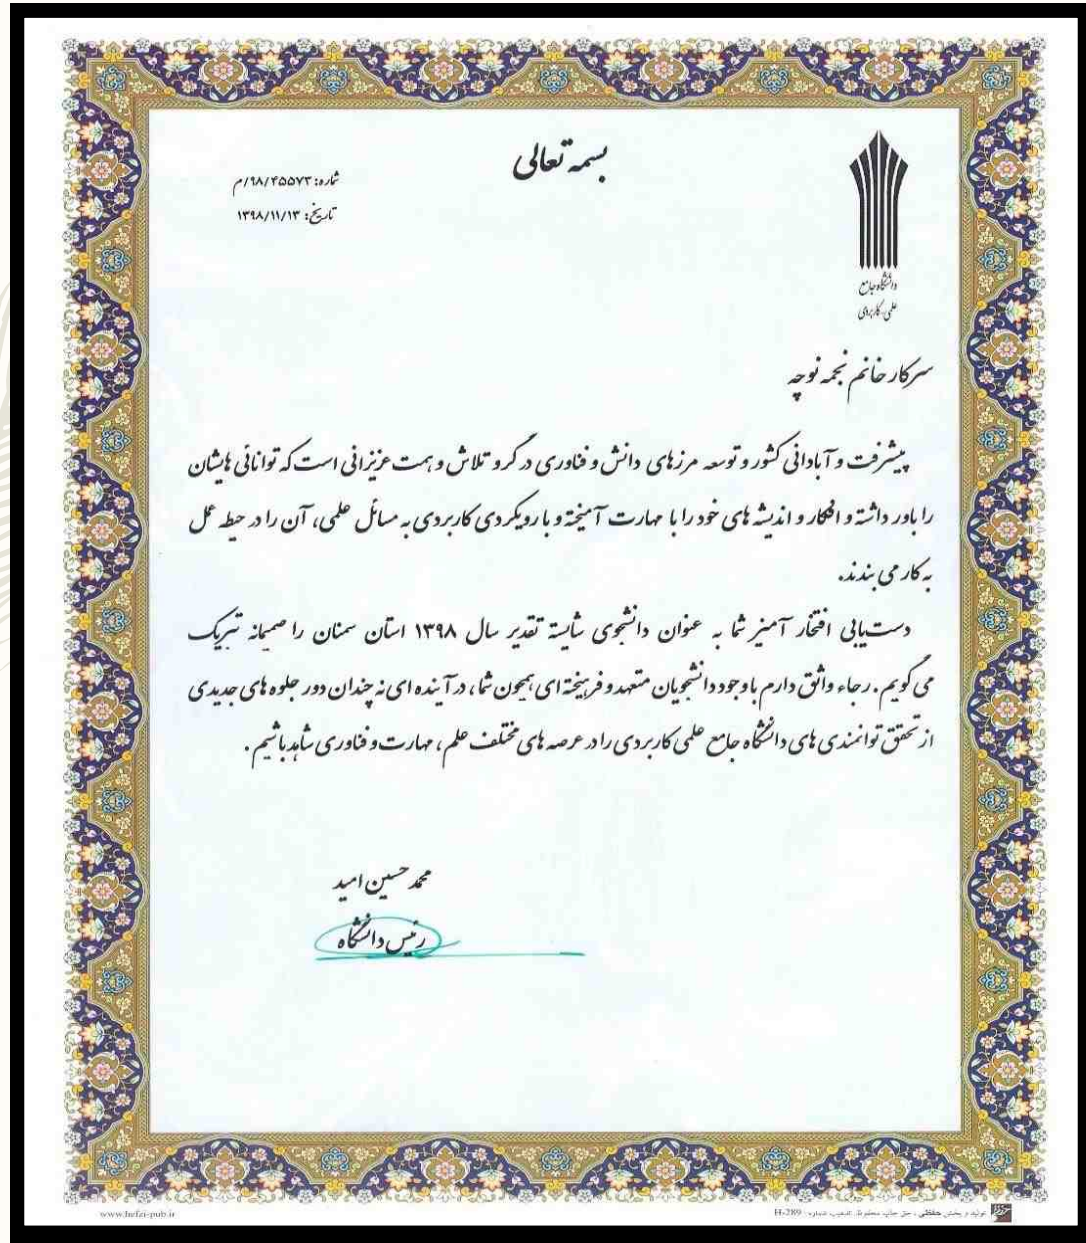 بسمه تعالی
شماره: ۹۸/۴۵۵۷۳/م
تاریخ: ۱۳۹۸/۱۱/۱۳
دانشگاه جامع
علمی کاربردی
سرکار خانم نجمه نوچه
پیشرفت و آبادانی کشور و توسعه مرزهای دانش و فناوری در گرو تلاش و همت عزیزانی است که توانائی هایشان
را باور داشته و افکار و اندیشه های خود را با مهارت آمیخته و با رویکردی کاربردی به مسائل علمی، آن را در حیطه عمل
به کار می بندند.
دست یابی افتخار آمیز شما به عنوان دانشجوی شایسته تقدیر سال ۱۳۹۸ استان سمنان را صمیمانه تبریک
می گویم. رجاء واثق دارم با وجود دانشجویان متعهد و فرهیخته ای همچون شما، در آینده ای نه چندان دور جلوه های جدیدی
از تحقق توانمندی های دانشگاه جامع علمی کاربردی را در عرصه های مختلف علم، مهارت و فناوری شاهد باشیم.
محمد حسین امید
رئیس دانشگاه
www.hefzi-pub.ir
تولید و پخش حفظی ، حق چاپ محفوظ. تذهیب شماره: H-289